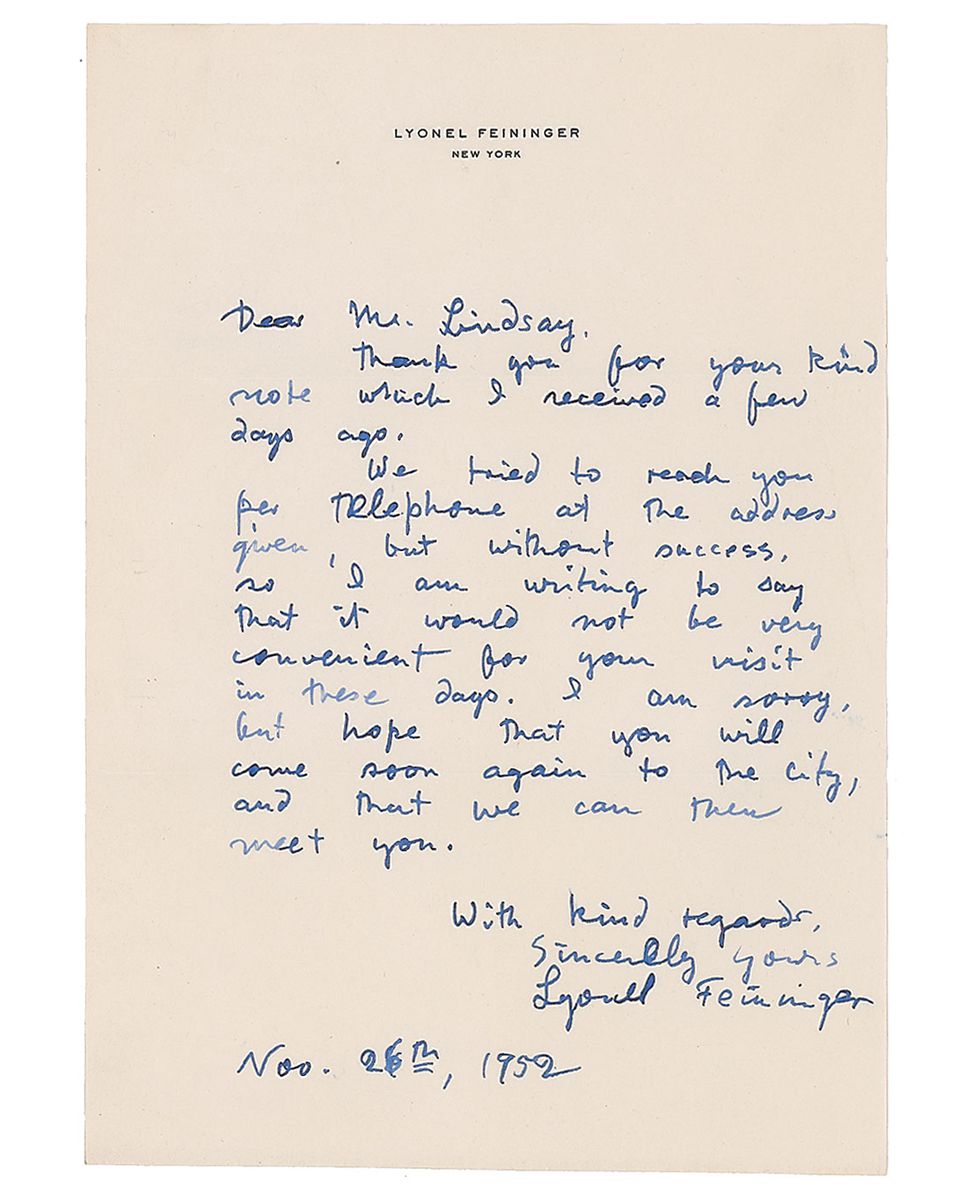 LYONEL FEININGER
NEW YORK
Dear Mr. Lindsay,
Thank you for your kind
note which I received a few
days ago.
We tried to reach you
per Telephone at the address
given, but without success,
so I am writing to say
that it would not be very
convenient for your visit
in these days. I am sorry,
but hope that you will
come soon again to the city,
and that we can then
meet you.
With kind regards,
Sincerely yours
Lyonel Feininger
Nov. 26th, 1952